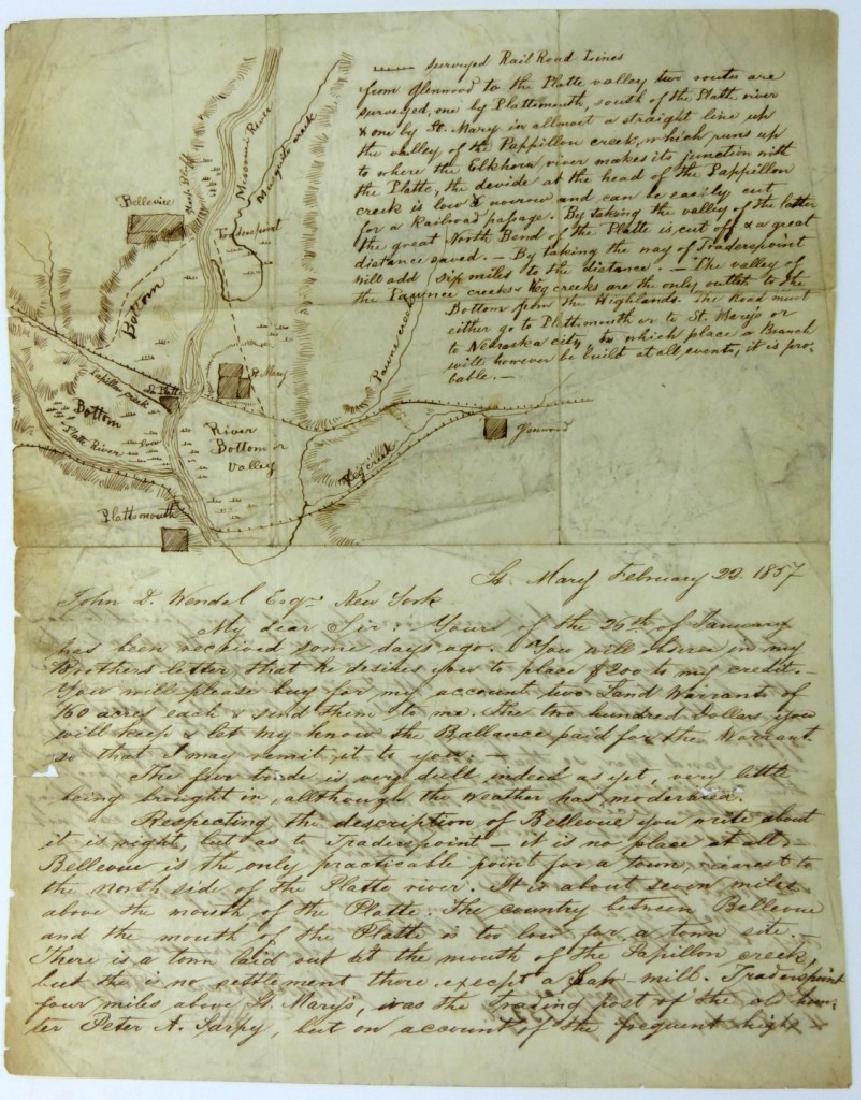 surveyed Rail Road Lines
from Glenwood to the Platte valley two routes are
surveyed, one by Plattsmouth, south of the Platte river
& one by St. Mary in allmost a straight line up
the valley of the Pappillon creek, which runs up
to where the Elkhorn river makes its junction with
the Platte, the divide at the head of the Pappillon
creek is low & norrow and can be easily cut
for a Railroad passage. By taking the valley of the latter
the great North Bend of the Platte is cut off & a great
distance saved. — By taking the way of Traderspoint
will add six miles to the distance. — The valley of
the Pawnee creek & Keg creeks are the only outlets to the
Bottom from the Highlands. The Road must
either go to Plattsmouth or to St. Marys or
to Nebraska city, to which place a Branch
will however be built at all events, it is pro-
bable. —
Missouri River
Musquito creek
Bellevue
High Bluff
Traderspoint
Bottom
Pawnee creek
Papillon creek
St. Mary
Bottom
Platte River
low
River
Bottom or
Valley
Keg creek
Glenwood
Plattsmouth
St. Mary February 22. 1857
John D. Wendel Esqr. New York
My dear Sir: Yours of the 26th of January
has been received some days ago. You will in my
Brothers letter, that he desires you to place $200 to my credit. —
You will please buy for my account two Land Warrants of
160 acres each & send them to me. The two hundred Dollars you
will keep & let my know the Ballance paid for the Warrant
so that I may remit it to you. —
The fur trade is very dull indeed as yet, very little
being brought in, allthough the weather has moderated.
Respecting the description of Bellevue you write about
it is right, but as to Traderspoint — it is no place at all. —
Bellevue is the only practicable point for a town, nearest to
the north side of the Platte river. It is about seven miles
above the mouth of the Platte. The country between Bellevue
and the mouth of the Platte is too low for a town site. —
There is a town laid out at the mouth of the Papillon creek,
but the is no settlement there except a mill. Traderspoint
four miles above St. Marys, was the Trading post of the old
Peter A. Sarpy, but on account of the frequent high